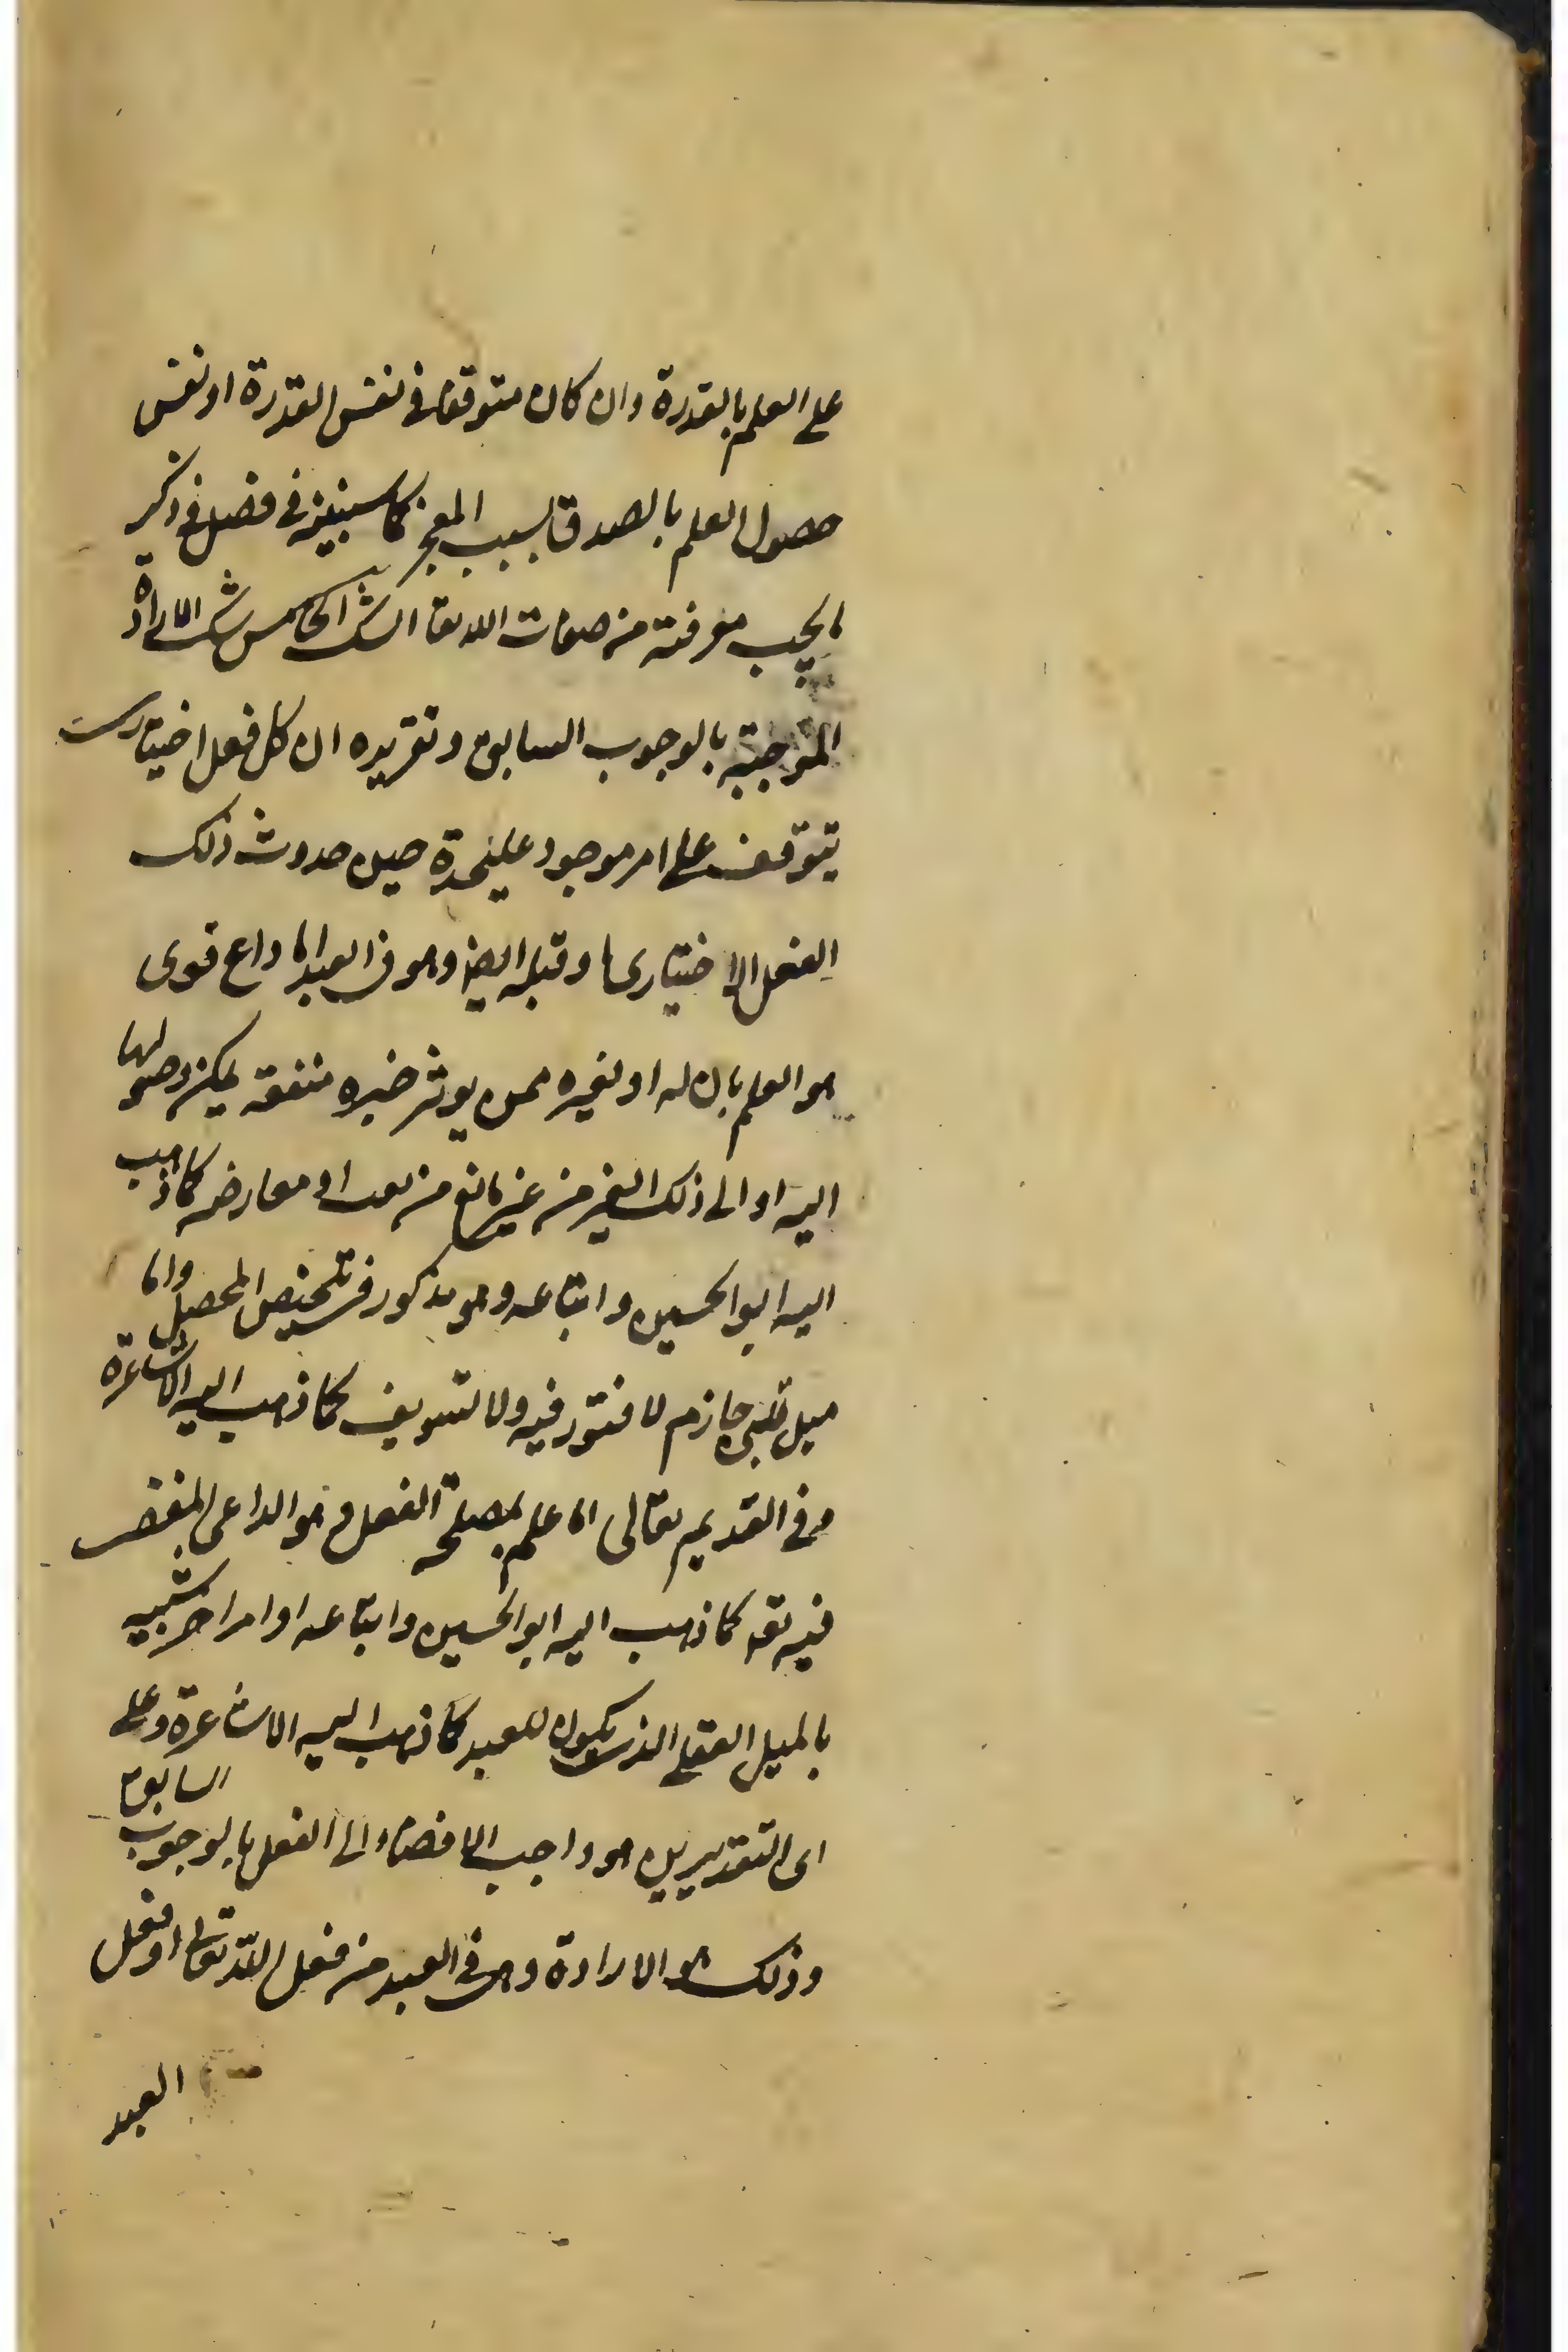 على العلم بالقدرة وان كان متوقفا في نفس القدرة او نفس
حصول العلم بالصدق بسبب المعجز كما سنبينه في فصل في ذكر
ما يجب معرفته من صفات الله تعا الشك الخامس شك الارادة
الموجبة بالوجوب السابق وتقريره ان كل فعل اختياري
يتوقف على امر موجود عليحدة حين حدوث ذلك
الفعل الاختياري وقبله ايضا وهو في العبد اما داع قوى
هو العلم بان له او لغيره ممن يوثر خيره منفعة يمكن وصولها
اليه او الى ذلك الغير من غير مانع من تعب او معارضه كما ذهب
اليه ابو الحسين واتباعه وهو مذكور في تلخيص المحصل واما
ميل قلبى جازم لا فتور فيه ولا تسويف كما ذهب اليه الاشاعرة
وفي القديم تعالى اما علم بمصلحة الفعل وهو الداعى المفضى
فيه تعه كما ذهب اليه ابو الحسين واتباعه او امر اخر شبيه
بالميل العقلى الذى يكون للعبد كما ذهب اليه الاشاعرة وعلى
اى التقديرين هو واجب الافضاء الى الفعل بالوجوب السابق
وذلك هو الارادة وهى في العبد من فعل الله تعالى او فعل
العبد